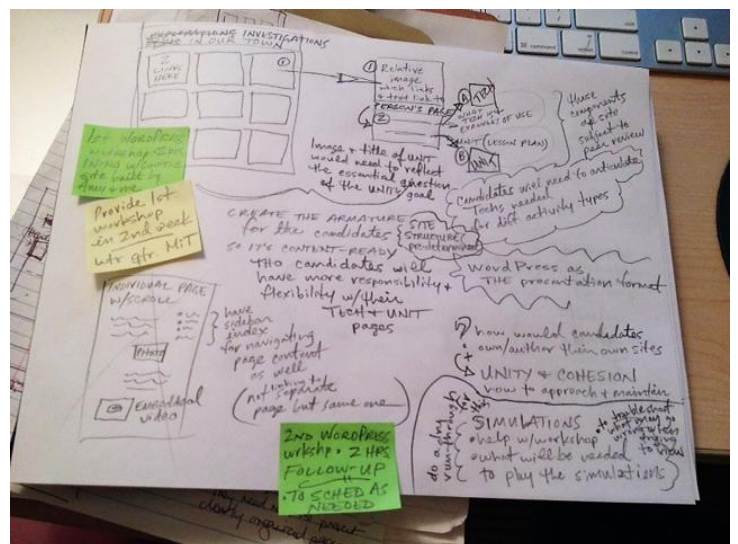 INVESTIGATIONS
IN OUR TOWN
2
LINKS
HERE
1
1 Relative
image
which links
+ text link to
PERSON'S PAGE
2
A TECH
WHAT
TECH IT IS
EXAMPLE OF USE
UNIT (LESSON PLAN)
B UNIT
these
components
of site
subject to
peer review
Image + title of UNIT
would need to reflect
the essential question
of the UNIT'S goal
Candidates will need to articulate
Techs needed
for diff activity types
1st WORDPRESS
workshop 2 HRS
site built by
Amy + me
Provide 1st
workshop
in 2nd week
wtr qtr. MIT
CREATE THE ARMATURE
for the candidates
so IT'S CONTENT-READY
THO candidates will
have more responsibility +
flexibility w/their
TECH + UNIT
pages
SITE
STRUCTURE
pre-determined
WORDPRESS as
THE presentation format
INDIVIDUAL PAGE
W/SCROLL
PHOTO
EMBEDDED
video
have
sidebar
index
for navigating
page content
as well
(linking to
not separate
page but same one)
? how would candidates
own/author their own sites
+
UNITY + COHESION
how to approach + maintain
do a dry
run-through
for this
SIMULATIONS
• help w/workshop
• what will be needed
to play the simulations
+ troubleshoot
what may go
wrong when
trying
to view
2ND WORDPRESS
wrkshp • 2 HRS
FOLLOW-UP
• TO SCHED AS
NEEDED